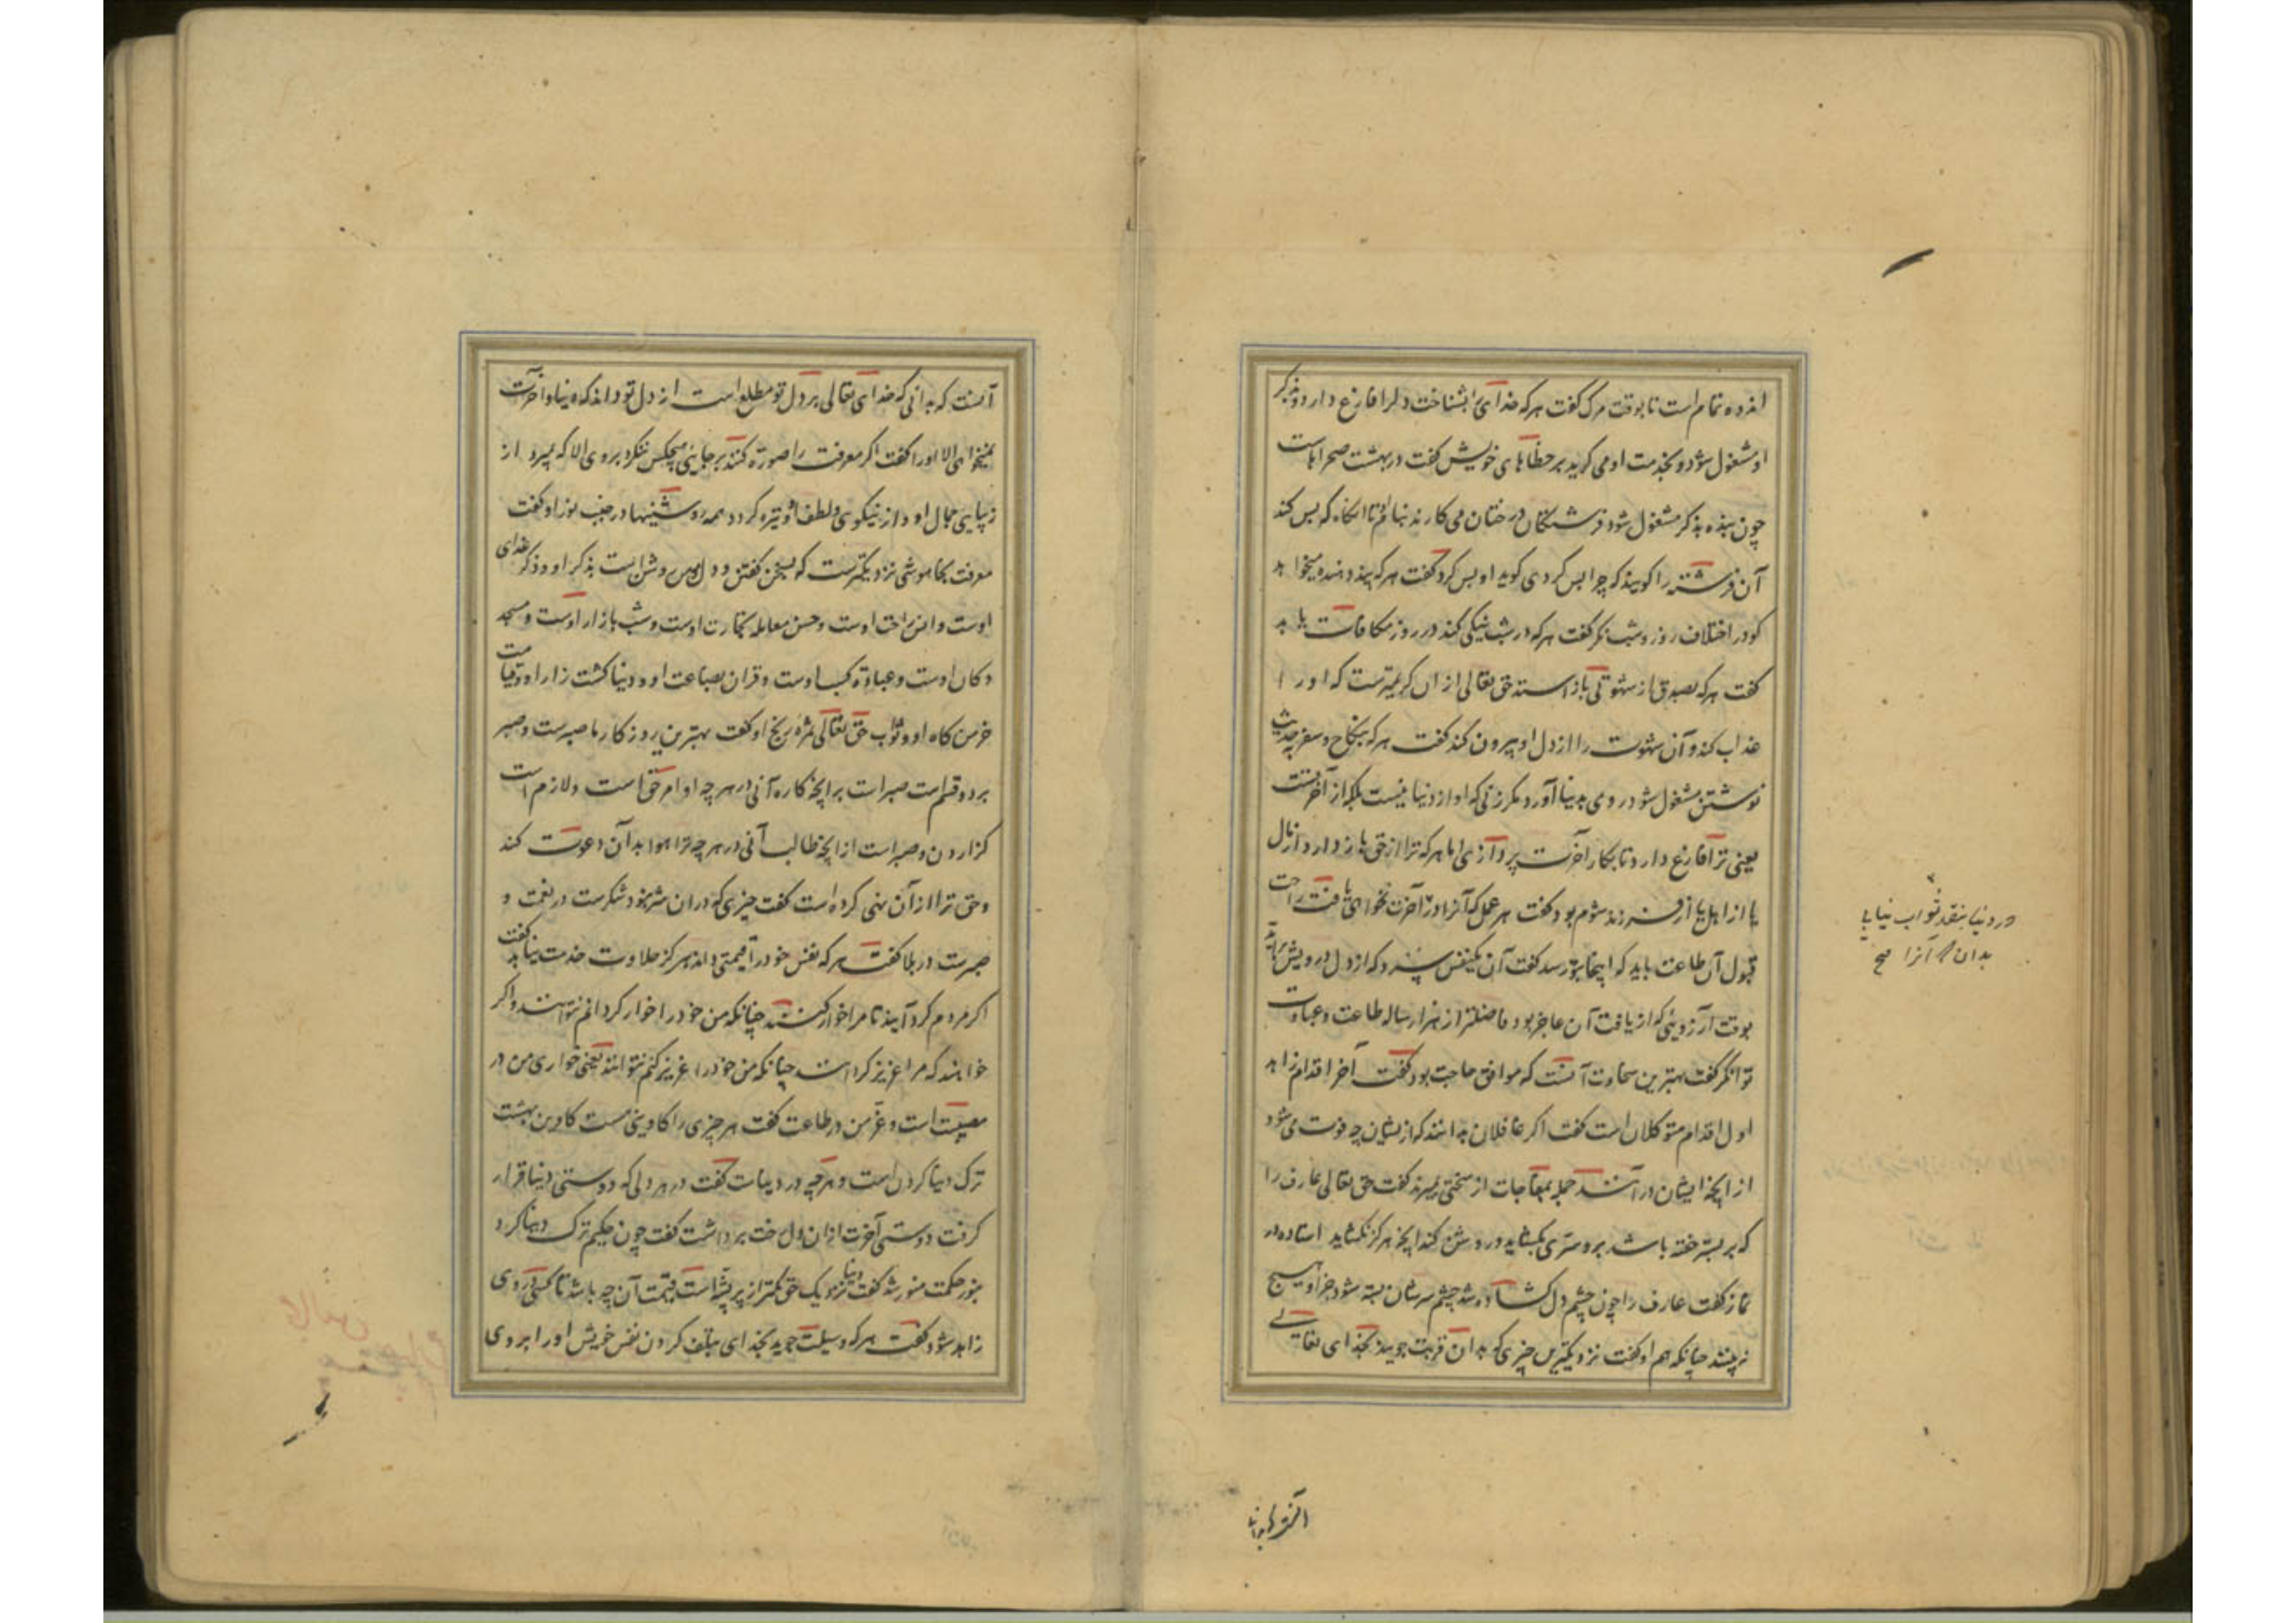 اندوه تمام است تا بوقت مرک کفت هرکه خدایرا بشناخت دلرا فارغ دارد و بذکر
او مشغول شود و بخدمت او می کرید بر خطاهای خویش کفت در بهشت صحراهاست
چون بنده بذکر مشغول شود فرشتکان درختان می کارند بنام او تا آنکاه که بس کند
آن فرشته را کویند که چرا بس کردی کوید او بس کرد کفت هرکه پند دهنده میخواهد
کو در اختلاف روز و شب نکر کفت هرکه در شب نیکی کند در روز مکافات یابد
کفت هرکه بصدق از شهوتی باز استد حق تعالی از آن کریمترست که او را
عذاب کند و آن شهوت را از دل او بیرون کند کفت هرکه بنکاح و سفر و حدیث
نوشتن مشغول شود روی بدنیا آورد مکر زنی که او از دنیا نیست بلکه از آخرتست
یعنی ترا فارغ دارد تا بکار آخرت پردازی اما هرکه ترا از حق باز دارد از مال
یا از اهل یا از فرزند شوم بود کفت هر عمل که آنرا در آخرت نخواهی یافت راحت
قبول آن طاعت باید که اینجا بتو رسد کفت آن یکنفس سرد که از دل درویش برآید
بوقت آرزوئی که از یافت آن عاجز بود فاضلتر از هزار ساله طاعت و عبادت
توانکر کفت بهترین سخاوت آنست که موافق حاجت بود کفت آخر اقدام زاهد
اول اقدام متوکلان است کفت اکر غافلان بدانند که از ایشان چه فوت می شود
از آنچه ایشان درآنند جمله بمفاجات از سختی بمیرند کفت حق تعالی عارف را
که بر بستر خفته باشد برو سرّی بکشاید و روشن کند آنچه هرکز نکشاید استاده در
نماز کفت عارف را چون چشم دل کشاده شد چشم سرشان بسته شود جز او هیچ
نبینند چنانکه هم او کفت نزدیکترین چیزی که بدان قربت جویند بخدای تعالی
در دنیا بنقد ثواب نیابی
بدان که آنرا صح
آنست که بدانی که خدای تعالی بر دل تو مطلع است از دل تو داند که دنیا و آخرت
نمیخواهی الا او را کفت اکر معرفت را صورة کنند بر جایی هیچکس ننکرد بروی الا که بمیرد از
زیبایی جمال او و از نیکویی و لطف او و تیره کردد همه روشنیها در جنب نور او کفت
معرفت بخاموشی نزدیکترست که بسخن کفتن و دل مومن روشن است بذکر او و ذکر غذای
اوست و انس راحت اوست و حسن معامله تجارت اوست و شب بازار اوست و مسجد
دکان اوست و عبادة کسب اوست و قران بضاعت او و دنیا کشت زار او و قیامت
خرمن کاه او و ثواب حق تعالی ثمره رنج او کفت بهترین روزکار ما صبرست و صبر
بر دو قسم است صبر است بر آنچه کاره آنی در هرچه اوامر حق است و لازم است
کزاردن و صبر است از آنچه طالب آنی در هرچه ترا هوا بدان دعوت کند
و حق ترا از آن نهی کرده است کفت چیزی که دران شر نبود شکرست در نعمت و
صبرست در بلا کفت هرکه نفس خود را قیمتی داند هرکز حلاوت خدمت نیابد کفت
اکر مردم کرد آیند تا مرا خوار کنند چنانکه من خود را خوار کرده ام نتوانند و اکر
خواهند که مرا عزیز کردانند چنانکه من خود را عزیز کنم نتوانند یعنی خواری من در
معصیت است و عزّ من در طاعت کفت هر چیزی را کاوینی هست کاوین بهشت
ترک دنیا کردن است و هرچه در دنیات کفت در هر دلی که دوستی دنیا قرار
کرفت دوستی آخرت از ان دل رخت برداشت کفت چون حکیم ترک دنیا کرد
بنور حکمت منور شد کفت دنیا نزدیک حق کمتر از پر پشّه است قیمت آن چه باشد تا کسی در وی
زاهد شود کفت هرکه وسیلت جوید بخدای بتلف کردن نفس خویش او را بروی